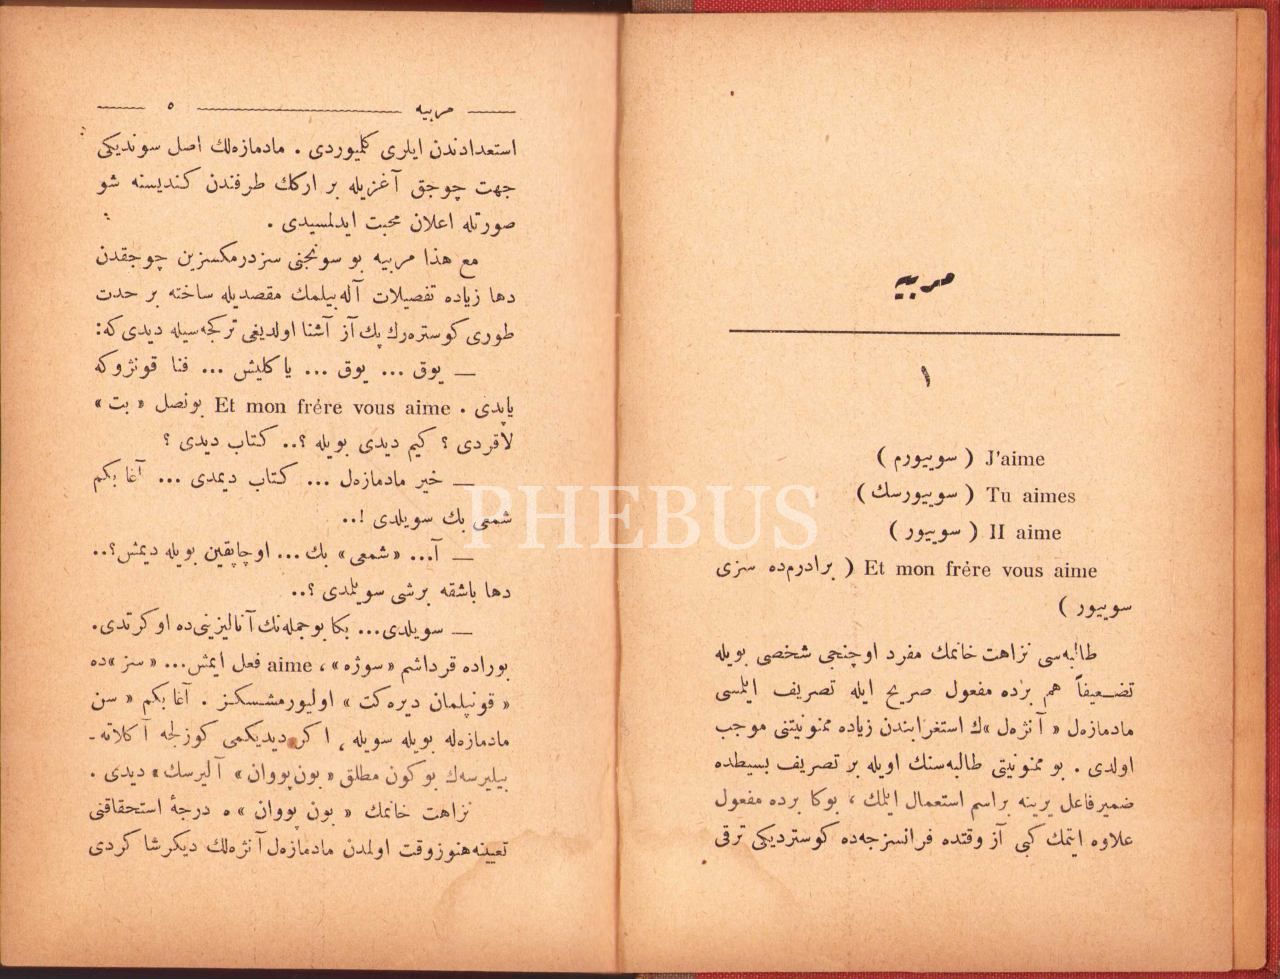 مربیه
١
J'aime ( سوییورم )
Tu aimes ( سوییورسك )
Il aime ( سوییور )
Et mon frére vous aime ( برادرم‌ده سزی
سوییور )
طالبه‌سی نزاهت خانمك مفرد اوچنجی شخصی بویله
تضعیفاً هم برده مفعول صریح ایله تصریف ایلمسی
مادمازه‌ل « آنژه‌ل »ك استغرابندن زیاده ممنونیتنی موجب
اولدی . بو ممنونیتی طالبه‌سنك اویله بر تصریف بسیطده
ضمیر فاعل یرینه بر اسم استعمال ایتمك ، بوكا برده مفعول
علاوه ایتمك كبی آز وقتده فرانسزجه‌ده كوستردیكی ترقی
مربیه ٥
استعدادندن ایلری كلمیوردی . مادمازه‌لك اصل سوندیكی
جهت چوجق آغزیله بر اركك طرفندن كندیسنه شو
صورتله اعلان محبت ایدلمسیدی .
مع هذا مربیه بو سونجنی سزدرمكسزین چوجقدن
دها زیاده تفصیلات آله‌بیلمك مقصدیله ساخته بر حدت
طوری كوستره‌رك پك آز آشنا اولدیغی تركجه‌سیله دیدی كه:
— یوق ... یوق ... یاكلیش ... فنا قونژوكه
یاپدی . Et mon frére vous aime بونصل « بت »
لاقردی ؟ كیم دیدی بویله ؟.. كتاب دیدی ؟
— خیر مادمازه‌ل ... كتاب دیمدی ... آغا بكم
شمعی بك سویلدی !..
— آ... «شمعی» بك ... او چاپقین بویله دیمش؟..
دها باشقه برشی سویلمدی ؟..
— سویلدی... بكا بو جمله‌نك آنالیزینی‌ده اوكرتدی.
بوراده قرداشم «سوژه» ، aime فعل ایمش... «سز»ده
« قونپلمان دیره‌كت » اولیورمشسكز . آغا بكم « سن
مادمازه‌له بویله سویله ، اكر دیدیكمی كوزلجه آكلاته‌ـ
بیلیرسه‌ك بوكون مطلق «بون پووان» آلیرسك» دیدی .
نزاهت خانمك « بون پووان » ه درجۀ استحقاقنی
تعیینه هنوز وقت اولمدن مادمازه‌ل آنژه‌لك دیكر شاكردی
PHEBUS